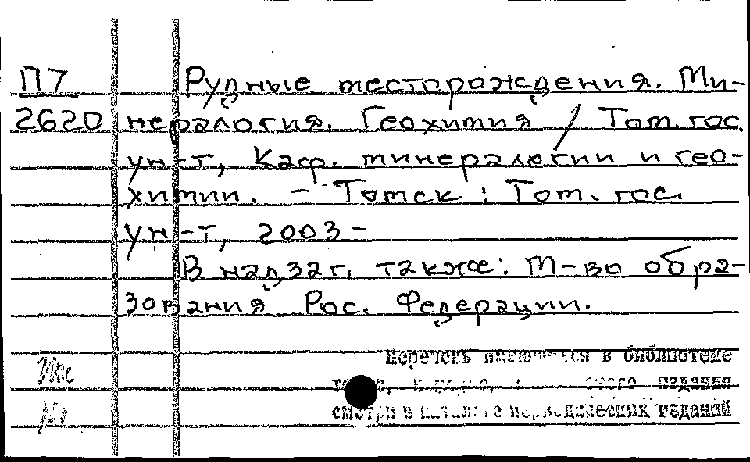 П7 Рудные месторождения. Ми-
2620 нералогия. Геохимия / Том. гос.
ун-т, Каф. минералогии и гео-
химии. - Томск : Том. гос.
ун-т, 2003-
В надзаг. также: М-во обра-
зования Рос. Федерации.
в библиотеке
издания
смотри в каталоге периодических изданий